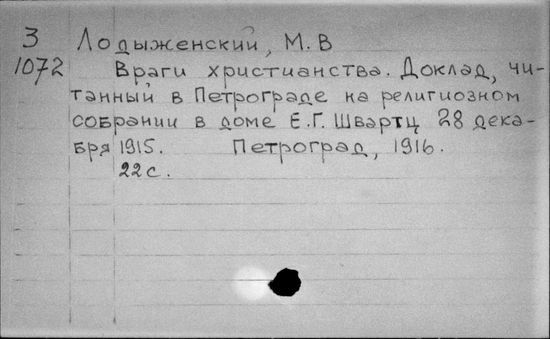 З Лодыженский, М. В
1072 Враги христианства. Доклад, чи-
танный в Петрограде на религиозном
собрании в доме Е. Г. Швартц 28 дека-
бря 1915. Петроград, 1916.
22 с.